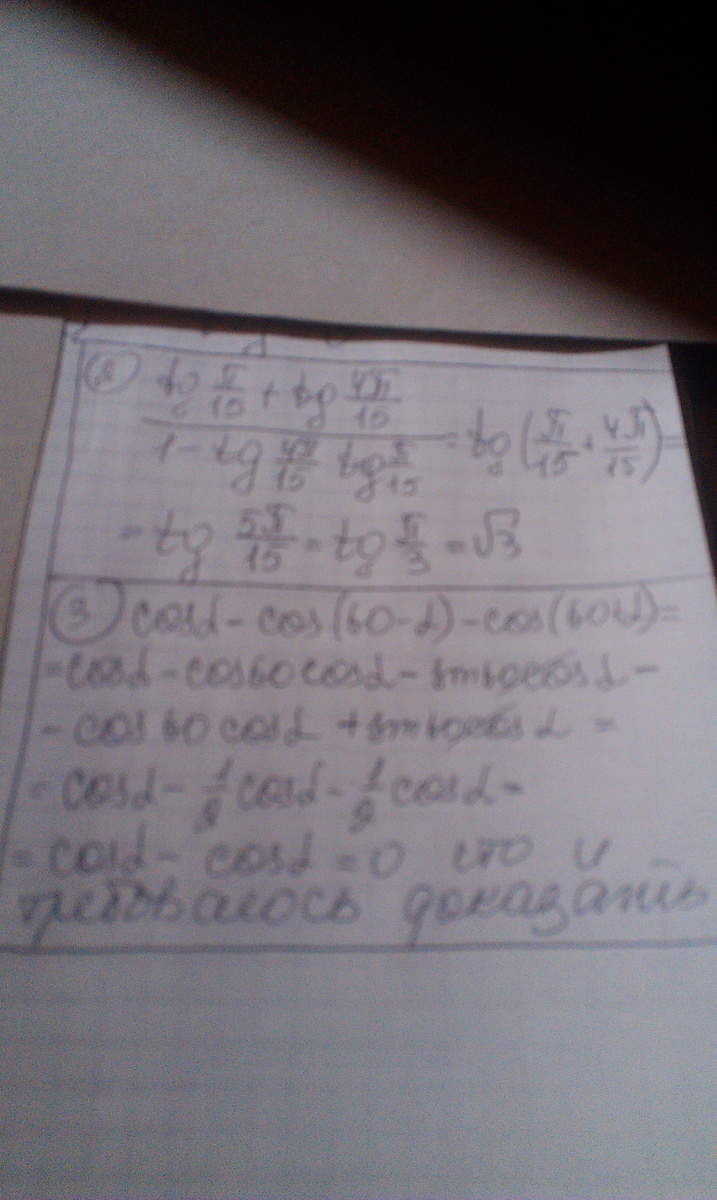 2) (tg π/15 + tg 4π/15) / (1 - tg 4π/15 tg π/15) = tg (π/15 + 4π/15) =
= tg 5π/15 = tg π/3 = √3
3) cosα - cos(60-α) - cos(60+α) =
= cosα - cos60cosα - sin60cosα -
- cos60cosα + sin60cosα =
= cosα - 1/2 cosα - 1/2 cosα =
= cosα - cosα = 0 что и
требовалось доказать